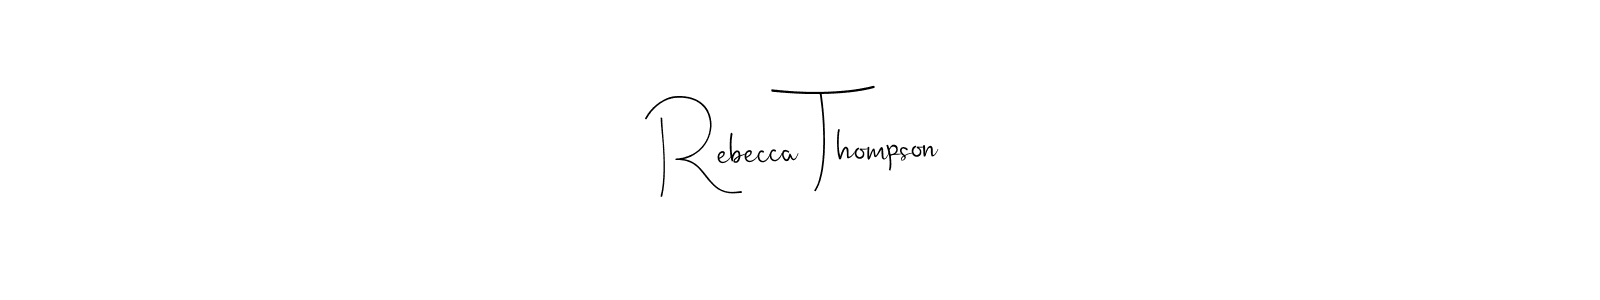 Rebecca Thompson